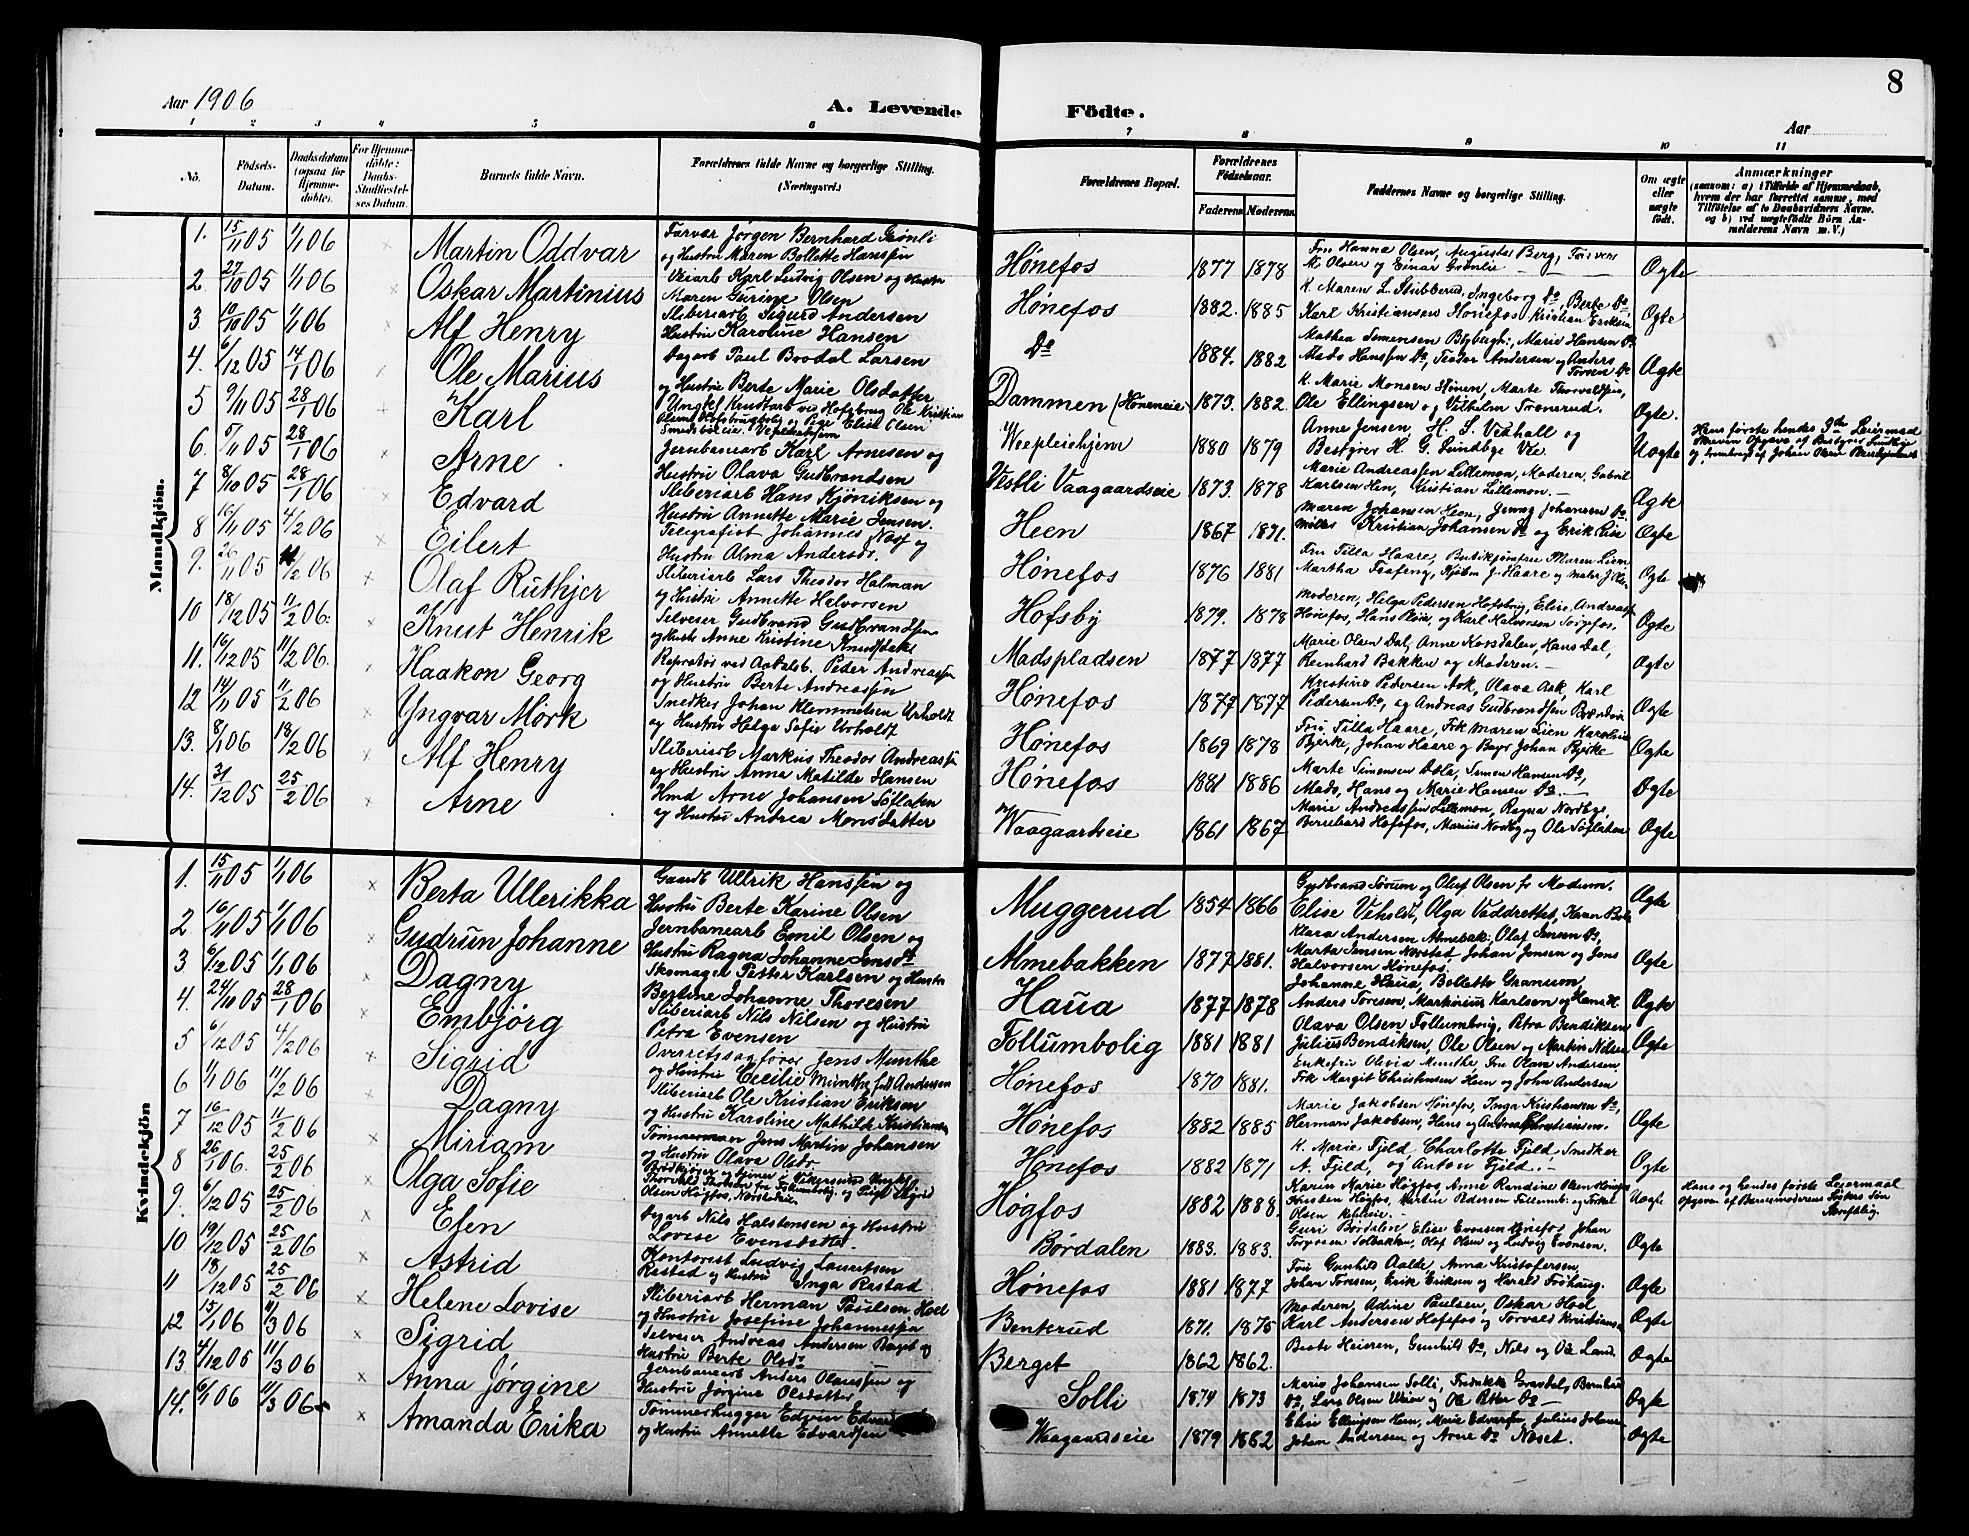 8
Aar 1906
A. Levende
Födte.
Aar
1 2 3 4 5 6 7 8 9 10 11
No.
Födsels-Datum.
Daabsdatum (ogsaa for Hjemme-döbte).
For Hjemme-döbte: Daabs-Stadfæstel-ses Datum.
Barnets fulde Navn.
Forældrenes fulde Navne og borgerlige Stilling. (Næringsvei.)
Forældrenes Bopæl.
Forældrenes Födselsaar.
Faderens Moderens
Faddernes Navne og borgerlige Stilling.
Om ægte eller uægte født.
Anmærkninger
(saasom: a) i Tilfælde af Hjemmedaab, hvem der har forrettet samme, med Tilföielse af to Daabsvidners Navne, og b) ved uægtefödte Börn Anmelderens Navn m. V.)
Mandkjön.
1. 15/11 05 1/1 06 Martin Oddvar
Farvar Jørgen Bernhard Grønli
og Hustru Maren Bollette Hanssen
Hønefos 1877 1878
Fru Hanna Olsen, Augusta Berg,
M. Olsen og Einar Grønlie
Ægte
2. 27/10 05 1/1 06 Oskar Martinius
Veiarb Karl Ludvig Olsen og Hustru
Maren Gurine Olsen
Hønefos 1882. 1885
K. Maren L. Stubberud, Ingeborg Do, Berte Do,
Karl Kristiansen Hønefos, Kristian Eriksen
Ægte
3. 10/10 05 1/1 06 Alf Henry
Sliberiarb Sigurd Andersen
Hustru Karoline Hansen
Do 1884. 1882
Mathea Simensen Marie Hansen Do
Mads Hanssen Do, Teodor Andersen og Anders
Ægte
4. 6/12 05 14/1 06 Ole Marius
Dagarb Paul Brodal Larsen
og Hustru Berte Marie Olsdatter
Dammen (Høneneie) 1873. 1882.
K. Marie Monsen Hønen, Marte Thorvaldsen,
Ole Ellingsen og Vilhelm Tronsrud.
Ægte.
5 9/11 05 28/1 06 Karl
Ungkf Ole Kristian
Elise Olsen
1880 1879
Anne Jensen H. S. Vexhall og
Bestyrer H. G. Lundbye Vee.
Uægte
Hans første hendes Leiermaal
6. 5/11 05 28/1 06 Arne
Jernbanearb Karl Arnesen og
Hustru Olava Gudbrandsen
Vestli Vaagaardseie 1873. 1878
Marie Andreassen Lillemon, Moderen, Gabriel
Karlsen Hen, Kristian Lillemon.
Ægte
7 8/10 05 28/1 06 Edvard
Sliberiarb Hans Kjøniksen og
Hustru Annette Marie Jensen.
Heen 1867 1871.
Maren Johansen Heen, Jenny Johansen Do.
Kristian Johansen Do og Erik Lise
Ægte
8 16/11 05 4/2 06 Eilert
Telegrafist Johannes Næss og
Hustru Alma Andersdr.
Hønefos 1876 1881
Fru Tilla Haare, Maren Lien
Ægte
9. 26/11 05 11/2 06 Olaf Ruthjer
Sliberiarb Lars Theodor Halman
og Hustru Annette Halvorsen
Hofsby 1879. 1878
Moderen, Helga Pedersen Hofsbrig, Elise Andreassen
Hønefos, Hans og Karl Halvorsen
Ægte
10 18/12 05 11/2 06. Knut Henrik
Selveier Gudbrand Gudbrandsen
og Hustr Anne Kristine Knudsdatter
Madspladsen 1877 1877
Marie Olsen Dal, Anne Korsdalen, Hans Dal,
Reinhard Bakken og Moderen.
Ægte
11. 16/12 05 11/2 06. Haakon Georg
Peder Andreassen
og Hustru Berte Andreassen
Hønefos 1877 1877
Kristine Pedersen Ask, Olava Ask, Karl
Pedersen Do, og Andreas Gudbrandsen
Ægte
12 14/11 05 11/2 06 Yngvar Mörk
Snedker Johan Klemmetsen Urholdt
og Hustru Helga Sofie Urholdt
Hønefos 1869 1878
Fru Tilla Haare, Frk Maren Lien Karoline
Bjerke, Johan Haare og Johan Bjerke
Ægte
13. 8/1 06 18/2 06 Alf Henry
Sliberiarb Markus Theodor Andreassen
og Hustru Anna Matilde Hansen
Hønefos 1881 1886
Marte Simensen Simen Hansen Do,
Mads, Hans og Marie Hansen Do.
Ægte
14. 31/12 05 25/2 06 Arne
Hmd Arne Johansen Søflaten
og Hustru Andrea Monsdatter
Waagaardseie 1861 1867
Marie Andreassen Lillemon, Ragna Nordbye,
Bernhard Hofsfos, Marius Nordby og Ole Søflaten
Ægte
Kvindekjön
1. 15/11 05 1/1 06 Berta Ullerikka
Gaardb Ullrik Hanssen og
Hustru Berte Karine Olsen
Muggerud 1854 1866
Gudbrand Sørum og Oluf Olsen fr Modum.
Elise Veholdt, Olga Vaddrettes, Karen
Ægte
2 16/11 05 1/1 06 Gudrun Johanne
Jernbanearb Emil Olsen og
Hustru Ragna Johanne Jensdt
Almebakken 1877 1881.
Klara Andersen Almebak., Olaf Jensen Do,
Marta Jensen Johan Jensen og Jens
Halvorsen Hønefos.
Ægte
3 6/12 05 1/1 06 Dagny
Skomager Petter Karlsen og Hustru
Bertine Johanne Thoresen
Haua 1877 1878
Johanne Haua, Bollette Granum,
Anders Toresen, Martinius Karlsen og Hans H.
Ægte
4. 24/10 05 28/1 06 Embjørg
Sliberiarb Nils Nilsen og Hustru
Petra Evensen
Follumbolig 1881 1881
Olava Olsen Follumbrig, Petra Bendiksen
Julius Bendiksen, Ole Olsen og Martin Nilsen
Ægte
5 6/12 05 4/2 06 Sigrid
Overretssagfører Jens Munthe
og Hustru Cecilie Munthe født Andersen
Hønefos 1870 1881.
Enkefru Olivia Munthe, Fru Olava Andersen,
Frk Margit Christensen Heen og John Andersen
6 1/1 06 11/2 06 Dagny
Sliberiarb Ole Kristian Eriksen
og Hustru Karoline Mathilde Kristiansen
Hønefos 1882 1885
Marie Jakobsen Hønefos, Inga Kristiansen Do,
Herman Jakobsen, Hans og Andreas Christiansen.
Ægte
7 16/12 05 11/2 06 Miriam
Tømmermand Jens Martin Johansen
og Hustru Olava Olsdr
Hønefos 1882 1871
K. Marie Fjeld, Charlotte Fjeld Snedker
A. Fjeld, og Anton Fjeld.
Ægte
8 26/1 06. 25/2 06 Olga Sofie
Høgfos 1882 1888.
Karen Marie Høgfos, Anne Randine Olsen Hønefos
Torsten Høgfos, Martin Pedersen Follumb. og
Uægte
Hans og hendes første Leiermaal
Opgaven af Barnemoderens
9. 6/12 05 25/2 06 Elen
Dagarb Nils Halstensen og Hustru
Lovise Evensdatter.
Børdalen 1883. 1883.
Guri Børdalen, Elise Evensen Hønefos, Johan
Torgersen Solbakken, Olaf Olsen og Ludvig Evensen.
Ægte
10 19/12 05 25/2 06 Astrid
Kontorist Ludvig Lauritsen
Rastad og Hustru Inga Rastad
Hønefos 1881 1877
Fru Gunhild Aalde, Anna Kristofersen,
Johan Toresen, Erik Eriksen og Harald Frøhaug.
Ægte
11 18/12 05 25/2 06 Helene Lovise
Sliberiarb Herman Paulsen Hoel
og Hustru Josefine Johannessen
Benterud 1871. 1876
Moderen, Adine Paulsen, Oskar Hoel
Karl Andersen Hofsfos og Torvald Kristiansen
Ægte
12 15/1 06 11/3 06 Sigrid
Selveier Andreas Andersen Berget og
Hustru Berte Olsdr
Berget 1862 1862.
Beate Heieren, Gunhild Do, Nils og Ole Lande
Ægte
13 4/12 05 11/3 06 Anna Jørgine
Jernbanearb Anders Olaussen og
Hustru Jørgine Olsdatter
Solli 1874 1873
Marie Johansen Solli, Fredrikke Grandal, Bernhard
Do, Lars Olsen og Ole Petter Do
Ægte
14. 6/1 06 11/3 06 Amanda Erika
Tømmerhugger Edvin Edvardsen
og Hustru Annette Edvardsen
Waagaardseie 1879 1882
Elise Ellingsen Hen, Marie Edvardsen, Julius Johansen
Johan Andersen og Arne Do Næset.
Ægte